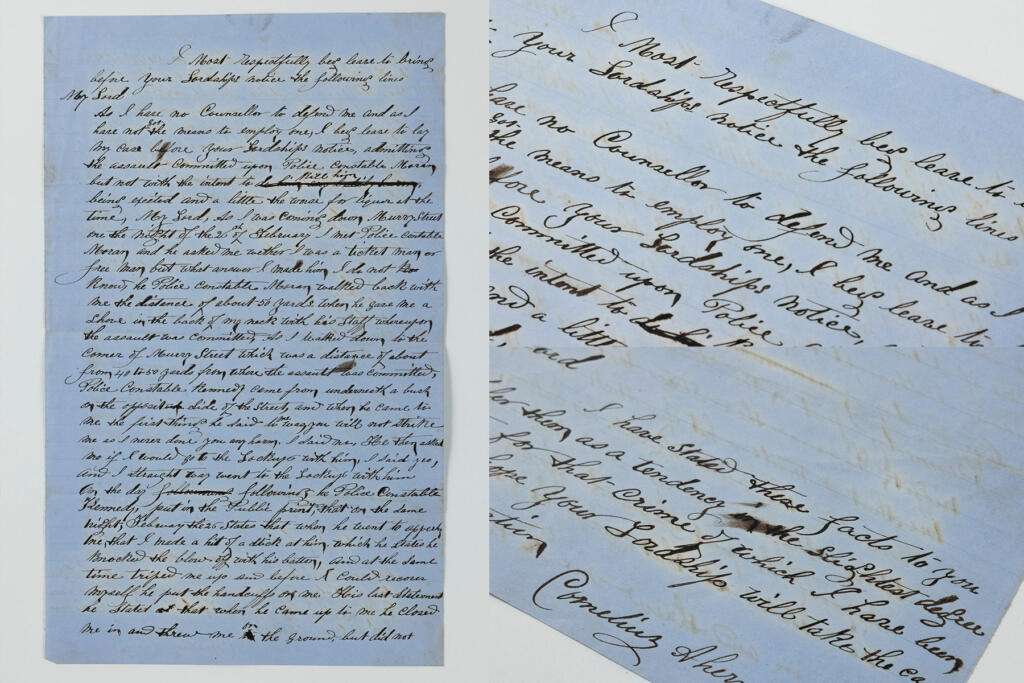 I Most Respectfully beg leave to bring
before Your Lordships notice the following lines
My Lord
As I have no Counsellor to defend me and as I
have not got the means to employ one, I beg leave to lay
my case before your Lordships notice, admitting
the assault committed upon Police Constable Moran
but not with the intent to
being ejected and a little the worse for liquor at the
time, My Lord, As I was coming down Murry Street
on the night of the 25th of February I met Police constable
Moran and he asked me wether I was a ticket man or
free man but what answer I made him I do not
Know, he Police Constable Moran walked back with
me the distance of about 50 yards when he gave me a
shove in the back of my neck with his Staff whereupon
the assault was committed, As I walked down to the
corner of Murry Street which was a distance of about
from 40 to 50 yards from where the assault was committed,
Police Constable Kennedy came from underneath a bush
on the opposite side of the Street, and when he came to
me the first thing he said to me you will not strike
me as I never done you any harm, I said no, He then asked
me if I would go to the Lockup with him, I said yes,
and I straight way went to the Lockup with him
On the day following he Police Constable
Kennedy, put in the Public print, that on the same
night, February the 25 States that when he went to apprehend
me, that I made a hit of a stick at him, which he states he
knocked the blow off with his batton, and at the same
time triped me up and before I could recover
myself he put the handcuffs on me. His last Statement
he States that when he came up to me he closed
me in and threw me on the ground, but did not
I Most Respectfully beg leave to
Your Lordships notice the following lines
have no Counsellor to defend me and as I
got
the means to employ one, I beg leave to
before your Lordships notice,
committed upon Police
the intent to
and a little
I have stated these facts to you
them as a tendency in the slightest degree
for that crime of which I have been
hope Your Lordship will take the
Cornelius Aher